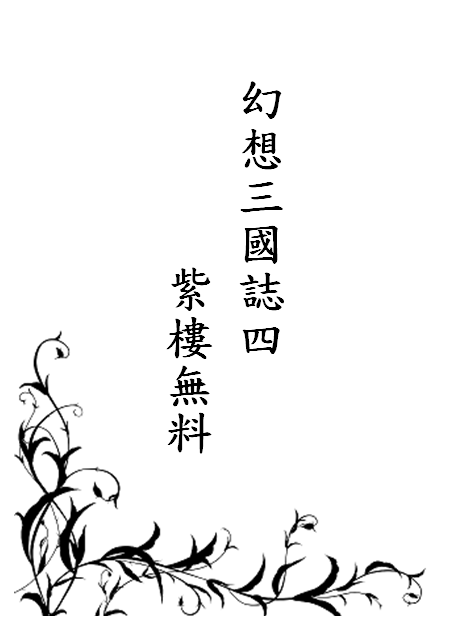 幻想三國誌四
紫樓無料